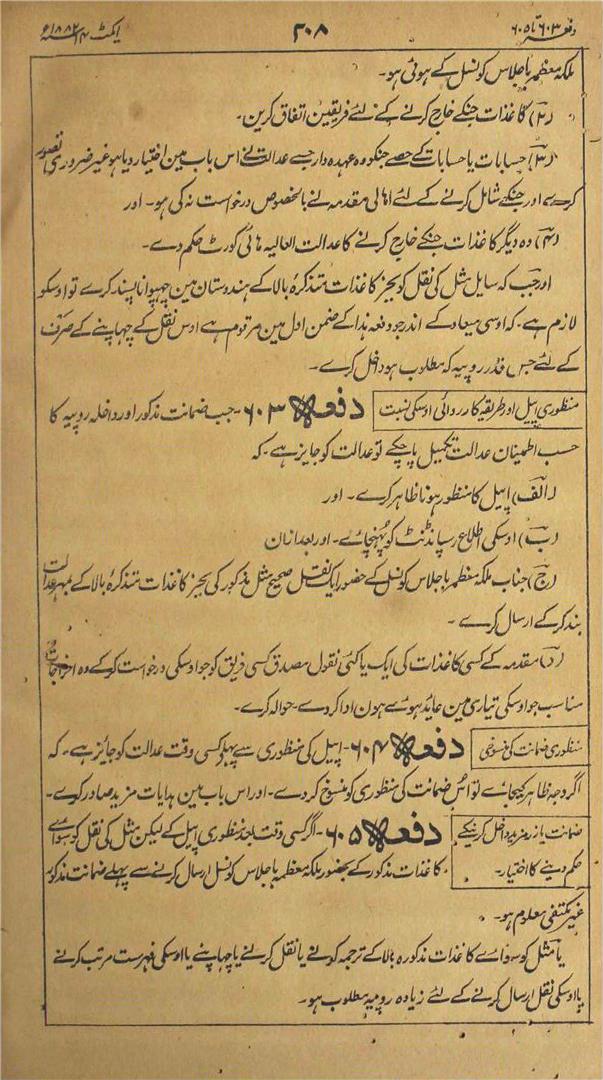 دفعہ ۶۰۳ تا ۶۰۵
۳۰۸
ایکٹ ۱۴ ۱۸۸۲ء
ملکہ معظمہ باجلاس کونسل کے ہوئی ہو۔
(۲) کاغذات جنکے خارج کرنے کے لئے فریقین اتفاق کرین۔
(۳) حسابات یا حسابات کے حصے جنکو وہ عہدہ دار جسے عدالت نے اس باب مین اختیار دیا ہو غیر ضروری تصور
کرے اور جنکے شامل کرنے کے لئے اہالی مقدمہ نے بالخصوص درخواست نہ کی ہو۔ اور
(۴) وہ دیگر کاغذات جنکے خارج کرنے کا عدالت العالیہ ہائی کورٹ حکم دے۔
اور جب کہ سایل مثل کی نقل کو بجز کاغذات متذکرۂ بالا کے ہندوستان مین چھپوانا پسند کرے تو اوسکو
لازم ہے۔ کہ اوسی میعاد کے اندر جو دفعہ ہذا کے ضمن اول مین مرقوم ہے اوس نقل کے چھاپنے کے صرف
کے لئے جس قدر روپیہ کہ مطلوب ہو داخل کرے۔
منظوری اپیل اور طریقہ کارروائی اوسکی نسبت
دفعہ ۶۰۳۔ جب ضمانت مذکور اور داخلہ روپیہ کا
حسب اطمینان عدالت تکمیل پا چکے تو عدالت کو جایز ہے۔ کہ
(الف) اپیل کا منظور ہونا ظاہر کرے۔ اور
(ب) اوسکی اطلاع رسپانڈنٹ کو پہنچائے۔ اور بعد ازان
(ج) جناب ملکہ معظمہ باجلاس کونسل کے حضور ایک نقل صحیح مثل مذکور کی بجز کاغذات متذکرۂ بالا کے بمہر عدالت
بند کر کے ارسال کرے۔
(د) مقدمہ کے کسی کاغذات کی ایک یا کئی نقول مصدق کسی فریق کو جو اوسکی درخواست کر کے وہ اخراجات
مناسب جو اوسکی تیاری مین عاید ہوئے ہون ادا کردے۔ حوالہ کرے۔
منظوری ضمانت کی منسوخی
دفعہ ۶۰۴۔ اپیل کی منظوری سے پہلے کسی وقت عدالت کو جائز ہے۔ کہ
اگر وجہ ظاہر کیجائے تو اس ضمانت کی منظوری کو منسوخ کردے۔ اور اس باب مین ہدایات مزید صادر کرے۔
ضمانت یا زر مزید داخل کرنیکے
حکم دینے کا اختیار۔
دفعہ ۶۰۵۔ اگر کسی وقت بعد منظوری اپیل کے لیکن مثل کی نقل کو سوائے
کاغذات مذکور کے بحضور ملکہ معظمہ باجلاس کونسل ارسال کرنے سے پہلے ضمانت مذکور
غیر مکتفی معلوم ہو۔
یا مثل کو سوائے کاغذات مذکورہ بالا کے ترجمہ کرنے یا نقل کرنے یا چھاپنے یا اوسکی فہرست مرتب کرنے
یا اوسکی نقل ارسال کرنے کے لئے زیادہ روپیہ مطلوب ہو۔